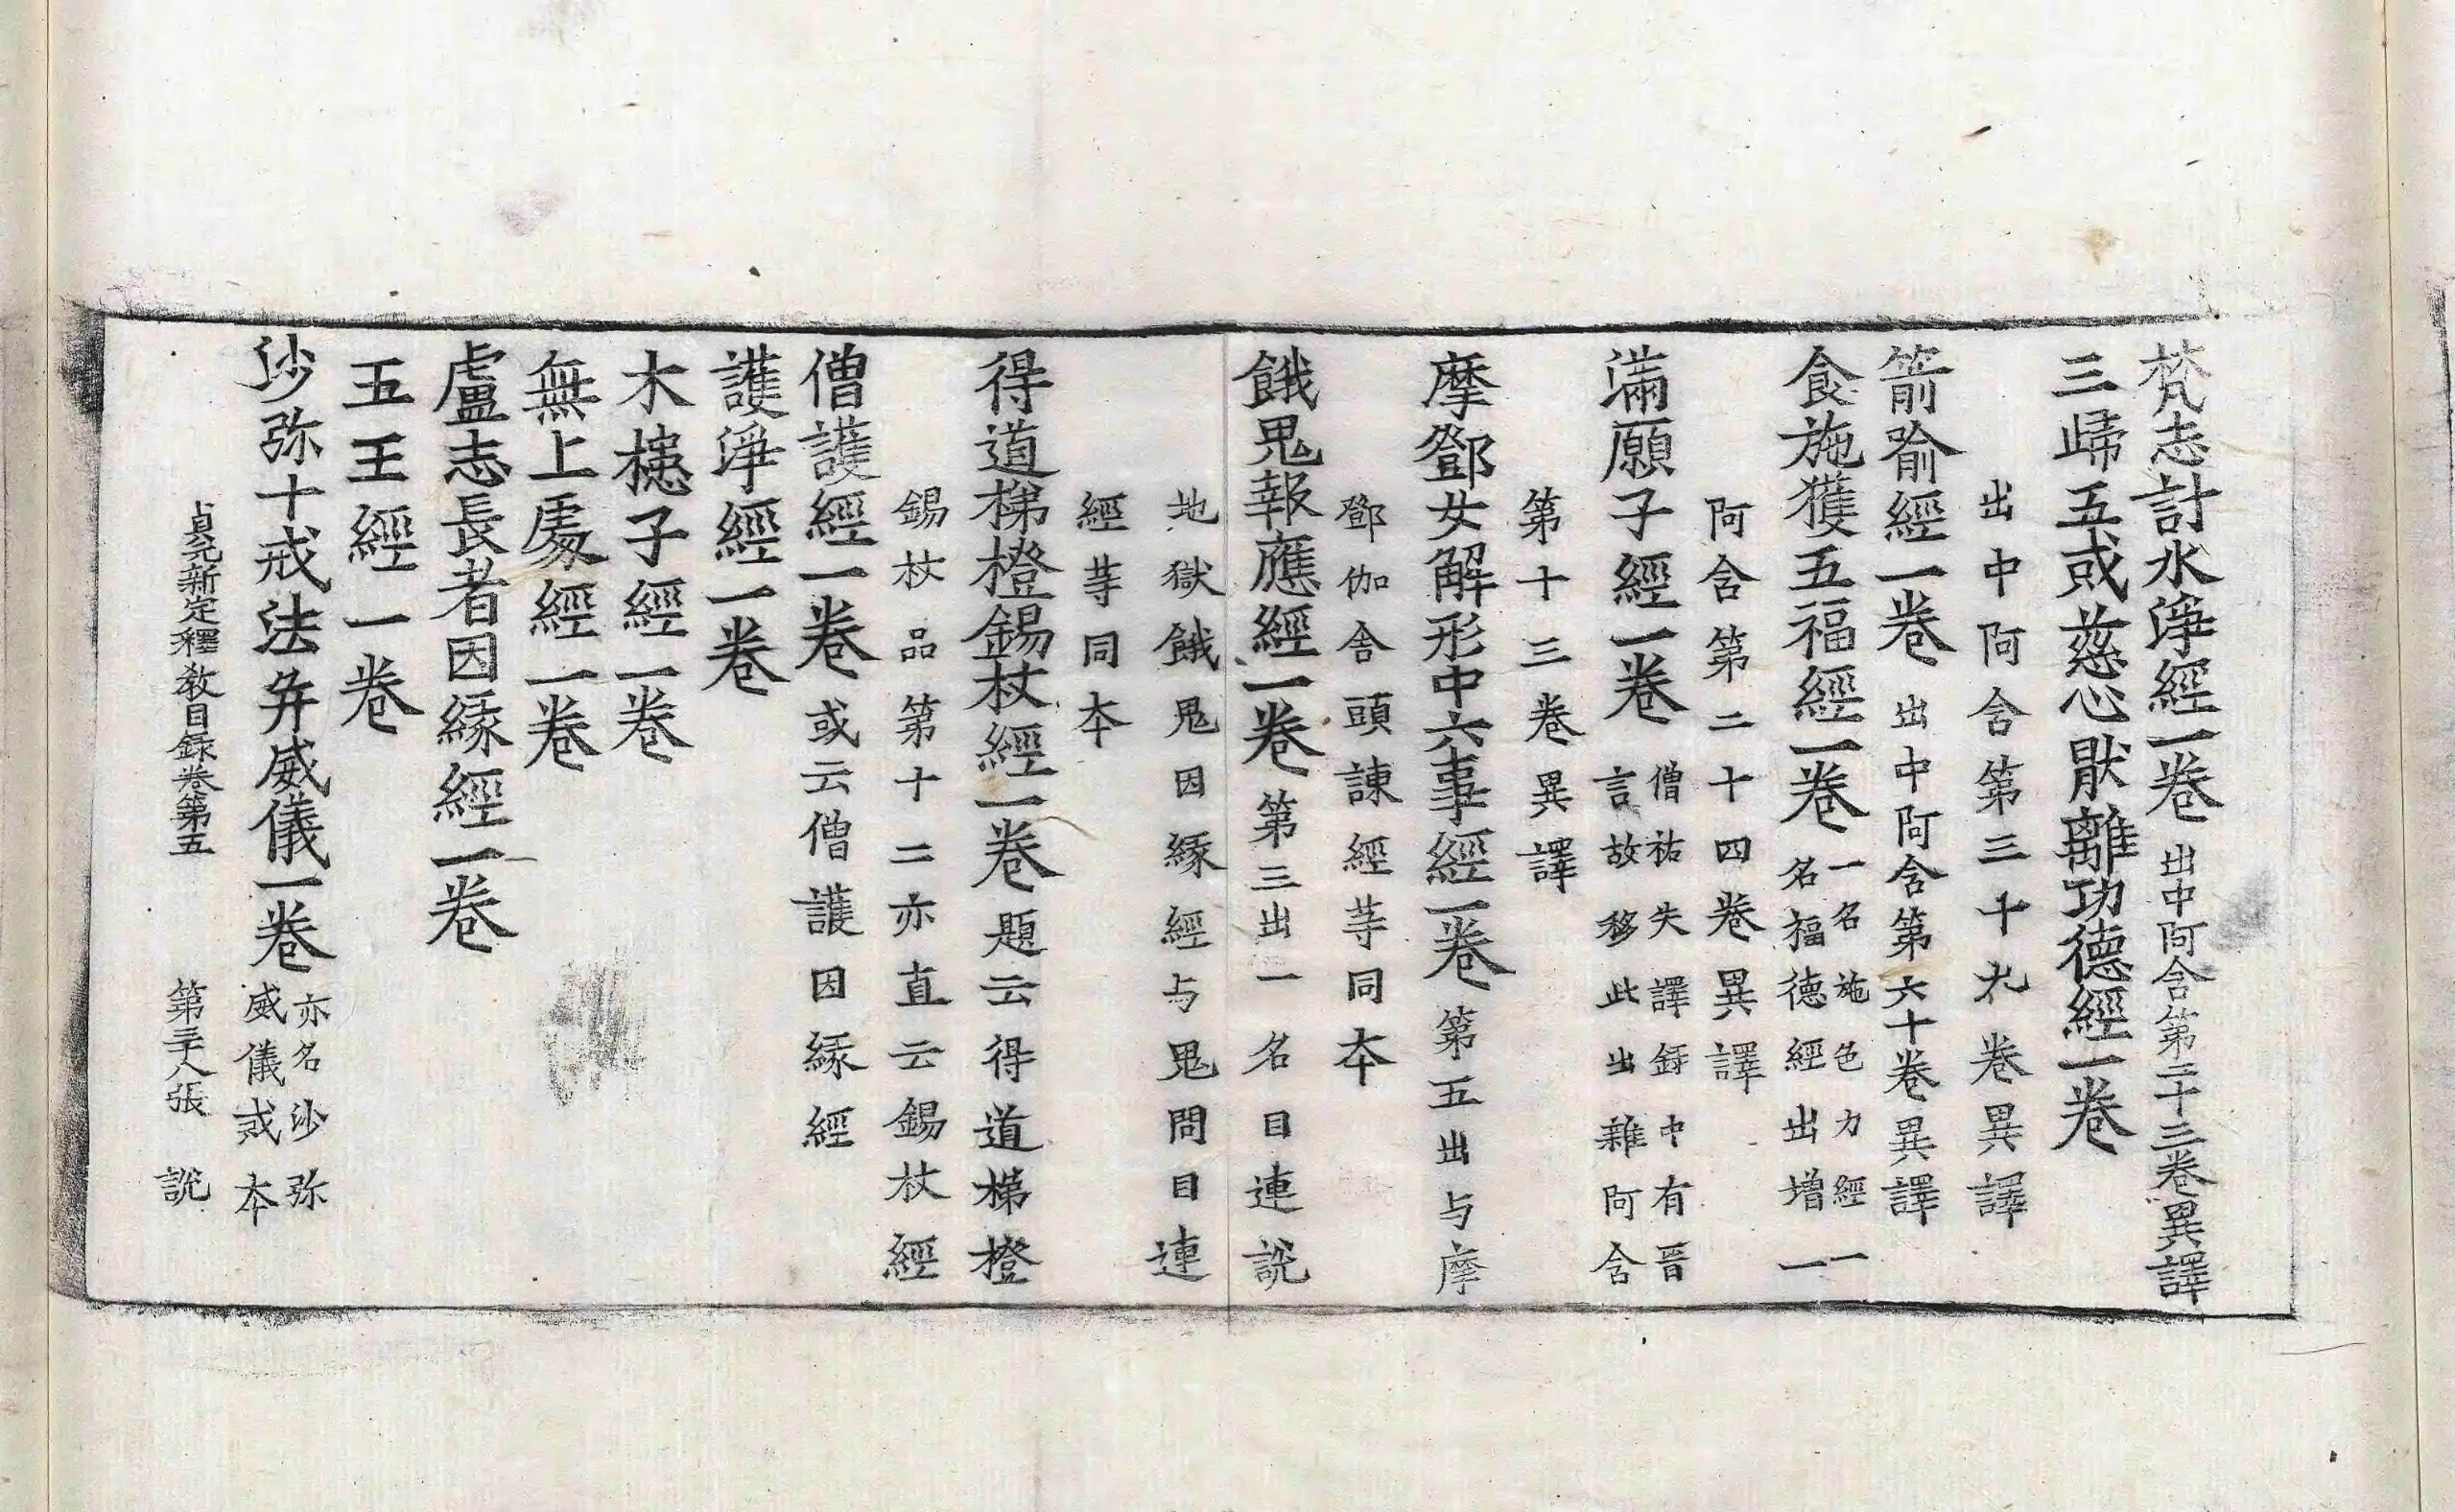 梵志計水淨經一卷出中阿含第二十三卷異譯
三歸五戒慈心猒離功德經一卷
出中阿含第三十九卷異譯
箭喻經一卷出中阿含第六十卷異譯
食施獲五福經一卷一名施色力經一
名福德經出增一
阿含第二十四卷異譯
滿願子經一卷僧祐失譯錄中有晉
言故移此出雜阿含
第十三卷異譯
摩鄧女解形中六事經一卷第五出与摩
鄧伽舍頭諫經等同本
餓鬼報應經一卷第三出一名目連說
地獄餓鬼因緣經与鬼問目連
經等同本
得道梯橙錫杖經一卷題云得道梯橙
錫杖品第十二亦直云錫杖經
僧護經一卷或云僧護因緣經
護淨經一卷
木槵子經一卷
無上處經一卷
盧志長者因緣經一卷
五王經一卷
沙弥十戒法并威儀一卷亦名沙弥
威儀戒本
貞元新定釋教目録卷第五 第三十八張 說